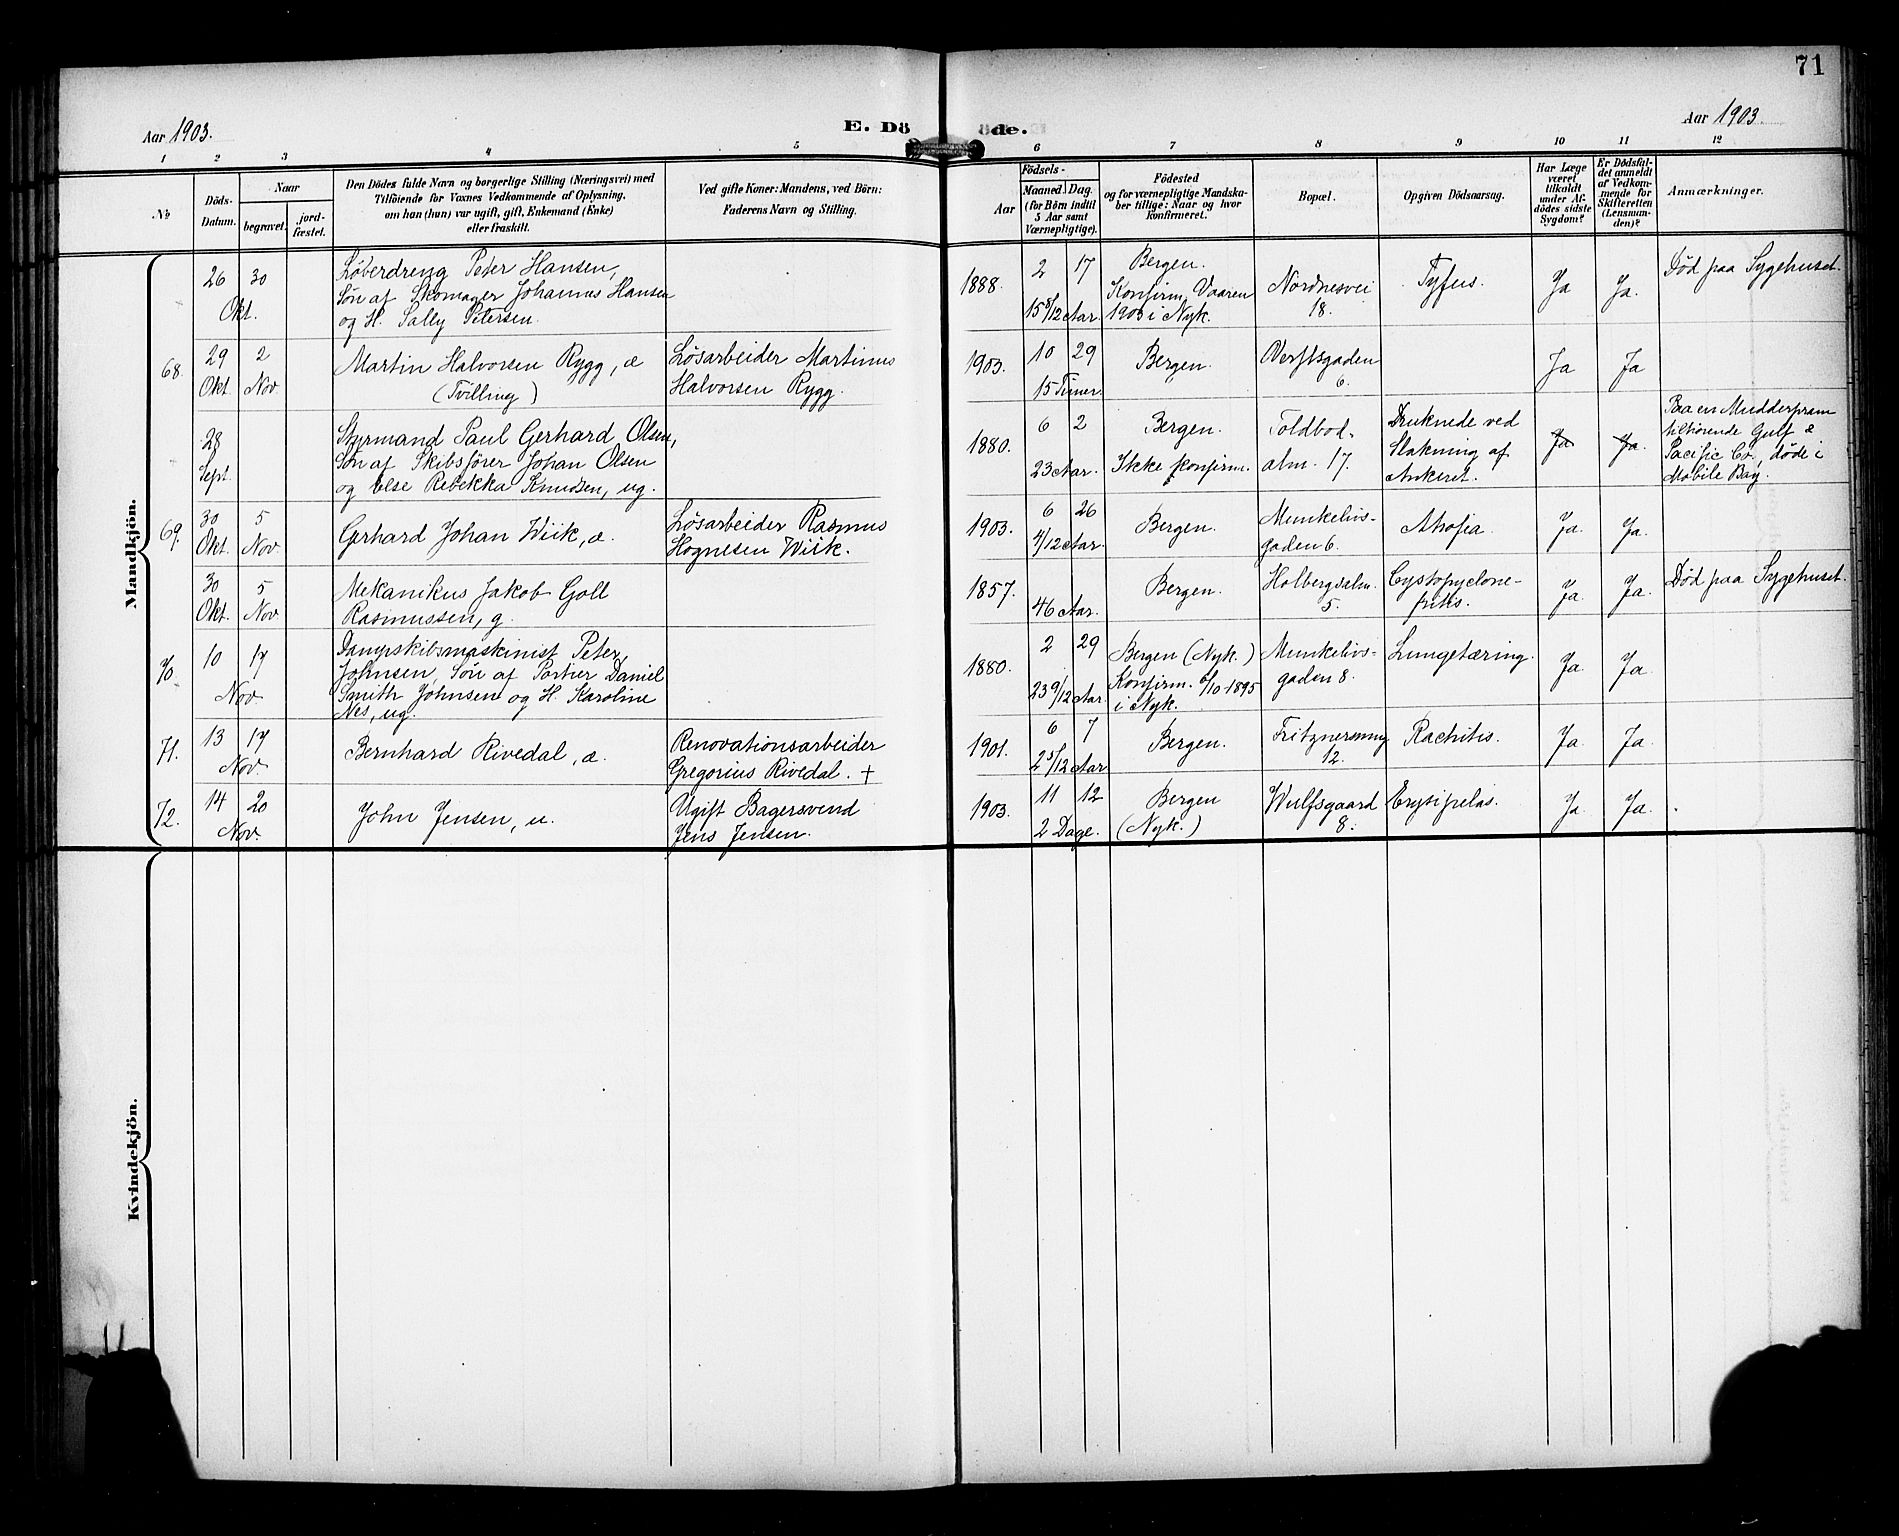 71
Aar 1903.
E. Döde.
Aar 1903
1 2 3 4 5 6 7 8 9 10 11 12
No
Döds-
Datum.
Naar
begravet.
jord-
fæstet.
Den Dödes fulde Navn og borgerlige Stilling (Næringsvei) med
Tilföiende for Voxnes Vedkommende af Oplysning,
om han (hun) var ugift, gift, Enkemand (Enke)
eller fraskilt.
Ved gifte Koner: Mandens, ved Börn:
Faderens Navn og Stilling.
Födsels-
Aar
Maaned
Dag.
(for Börn indtil
5 Aar samt
Værnepligtige).
Födested
og for værnepligtige Mandska-
ber tillige: Naar og hvor
konfirmeret.
Bopæl.
Opgiven Dödsaarsag.
Har Læge
været
tilkaldt
under Af-
dödes sidste
Sygdom?
Er Dödsfal-
det anmeldt
af Vedkom-
mende for
Skifteretten
(Lensman-
den)?
Anmærkninger.
Mandkjön.
26 30
Okt.
Løberdreng Peter Hansen,
Søn af Skomager Johannes Hansen
og H. Sally Petersen.
1888.
2 17
15 8/12 Aar.
Bergen.
Konfirm. Vaaren
1903 i Nyk.
Nordnesvei
18.
Tyfus.
Ja
Ja.
Død paa Sygehuset.
68.
29 2
Okt. Nov
Martin Halvorsen Rygg, æ
(Tvilling)
Løsarbeider Martinus
Halvorsen Rygg.
1903.
10 29
15 Timer.
Bergen.
Verftsgaden
6.
Ja
Ja
28
Sept.
Styrmand Paul Gerhard Olsen,
Søn af Skibsfører Johan Olsen
og Else Rebekka Knudsen, ug.
1880.
6 2
23 Aar.
Bergen.
Ikke konfirm.
Toldbod-
alm. 17.
Druknede ved
Slakning af
Ankeret.
Ja
Ja.
Paa en Mudderpram
tilhørende Gulf &
Pacific Co., døde i
Mobile Bay.
69.
30 5
Okt. Nov
Gerhard Johan Wiik, æ.
Løsarbeider Rasmus
Hognesen Wiik.
1903.
6 26
4/12 Aar.
Bergen.
Munkelivs-
gaden 6.
Atrofia.
Ja.
Ja.
30 5
Okt. Nov
Mekanikus Jakob Goll
Rasmussen, g.
1857.
46 Aar.
Bergen.
Holbergsalm.
5.
Cystopyelone-
fritis.
Ja.
Ja.
Død paa Sygehuset.
70.
10 17
Nov.
Dampskibsmaskinist Peter
Johnsen, Søn af Portier Daniel
Smith Johnsen og H. Karoline
Nes, ug.
1880.
2 29
23 9/12 Aar
Bergen (Nyk.)
Konfirm. 6/10 1895
i Nyk.
Munkelivs-
gaden 8.
Lungetæring.
Ja.
Ja.
71.
13 17
Nov.
Bernhard Rivedal, æ.
Renovationsarbeider
Gregorius Rivedal. +
1901.
6 7
2 5/12 Aar
Bergen.
Fritznersmug
12.
Rachitis.
Ja.
Ja.
72.
14 20
Nov.
John Jensen, u.
Ugift Bagersvend
Jens Jensen.
1903.
11 12
2 Dage.
Bergen
(Nyk.)
Wulfsgaard
8.
Erysipelas.
Ja.
Ja.
Kvindekjön.